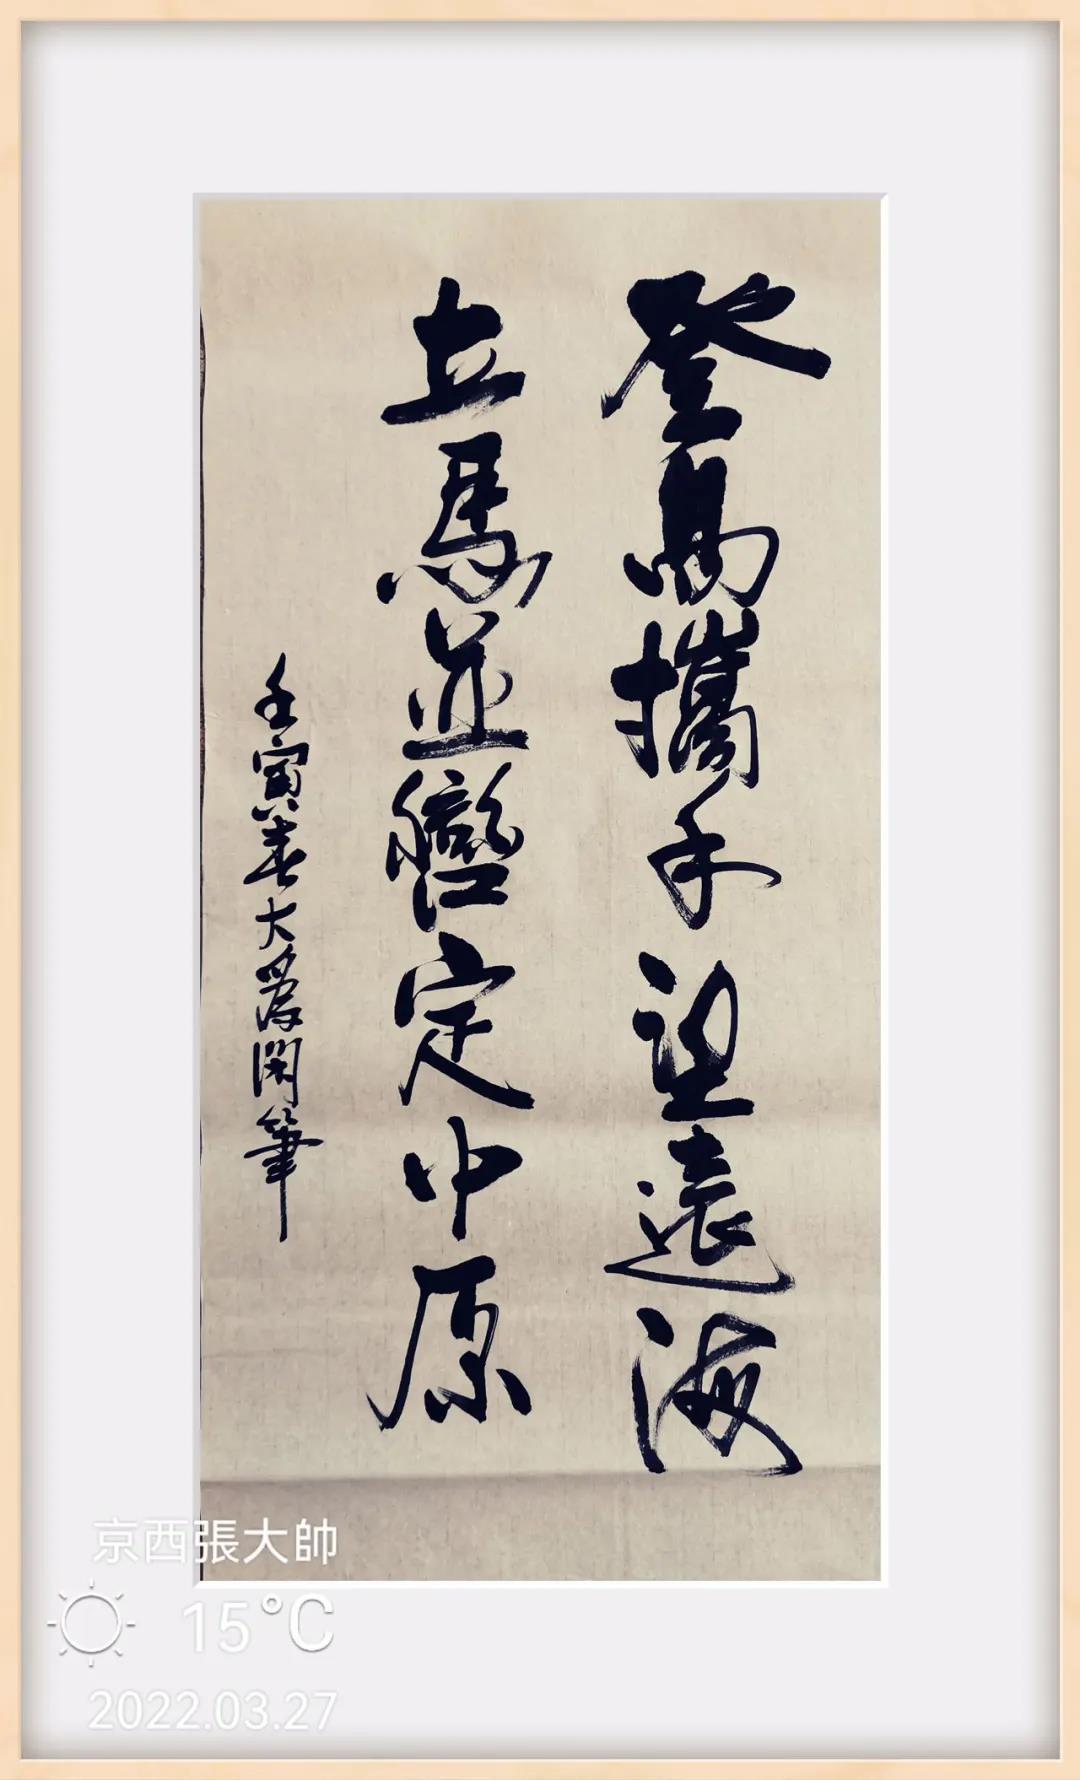 登高攜手望遠海
立馬並轡定中原
壬寅春大 筆
京西張大帥
15°C
2022.03.27